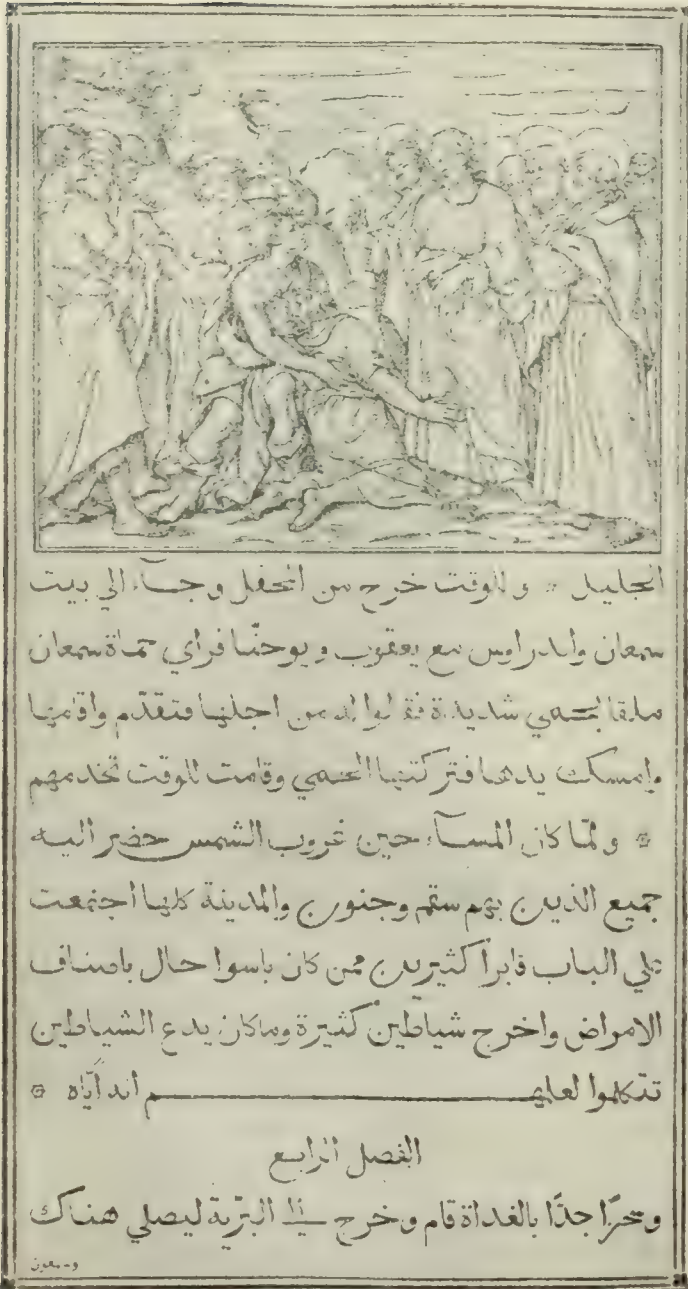 الجليل ۞ وللوقت خرج من المحفل وجآء الي بيت
سمعان واندراوس مع يعقوب ويوحنّا فراي حماة سمعان
ملقا بحمي شديدة فقالوا له من اجلها فتقدّم واقامها
وامسك يدها فتركتها الحمي وقامت للوقت تخدمهم
۞ ولمّا كان المسآء حين غروب الشمس حضر اليه
جميع الذين بهم سقم وجنون والمدينة كلها اجتمعت
علي الباب فابرا كثيرين ممن كان باسوا حال باصناف
الامراض واخرج شياطين كثيرة وما كان يدع الشياطين
تتكلموا لعلمهم انه اياه ۞
الفصل الرابع
وسحرًا جدًا بالغداة قام وخرج الي البرّية ليصلي هناك